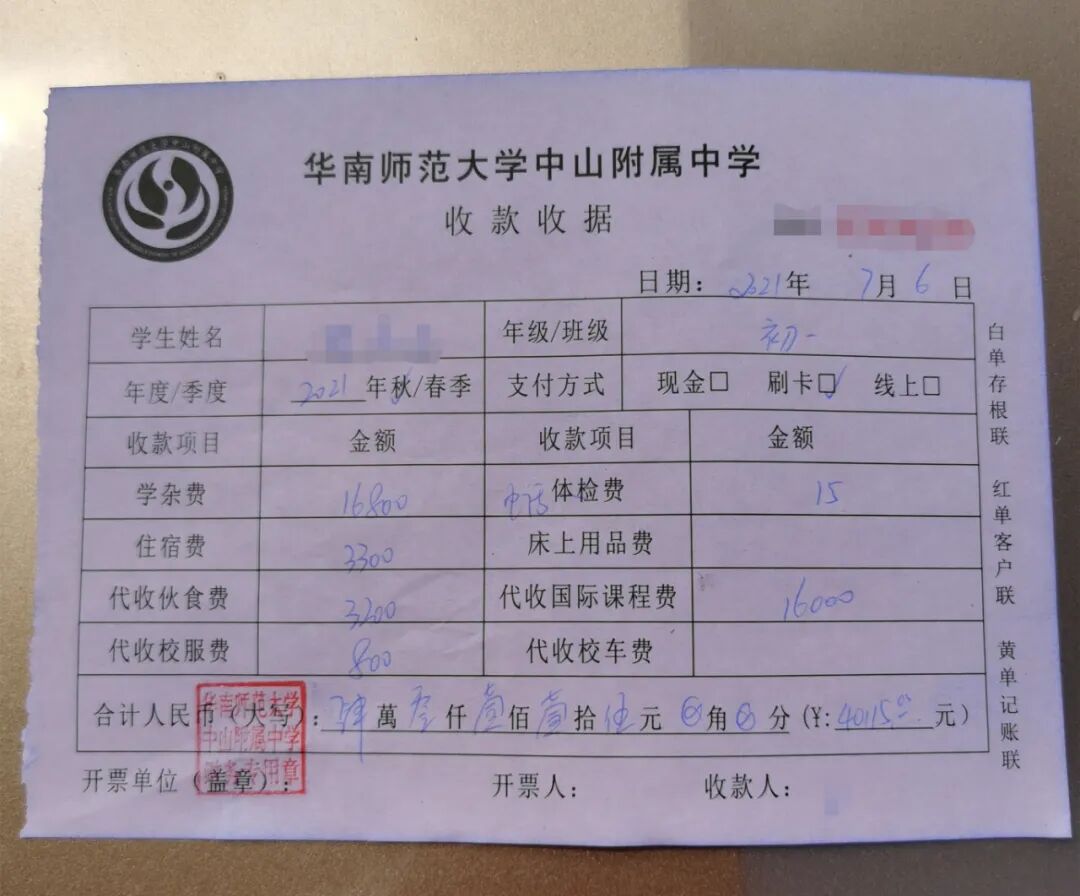 华南师范大学中山附属中学
收款收据
日期：2021年 7月 6日
学生姓名 年级/班级 初一
年度/季度 2021 年秋/春季 支付方式 现金□ 刷卡□✓ 线上□
收款项目 金额 收款项目 金额
学杂费 16800 电话 体检费 15
住宿费 3300 床上用品费
代收伙食费 3200 代收国际课程费 16000
代收校服费 800 代收校车费
合计人民币（大写）：肆萬零仟壹佰壹拾伍元 角 分（¥：40115.00元）
开票单位（盖章）： 开票人： 收款人：
华南师范大学
中山附属中学
财务专用章
白单存根联 红单客户联 黄单记账联